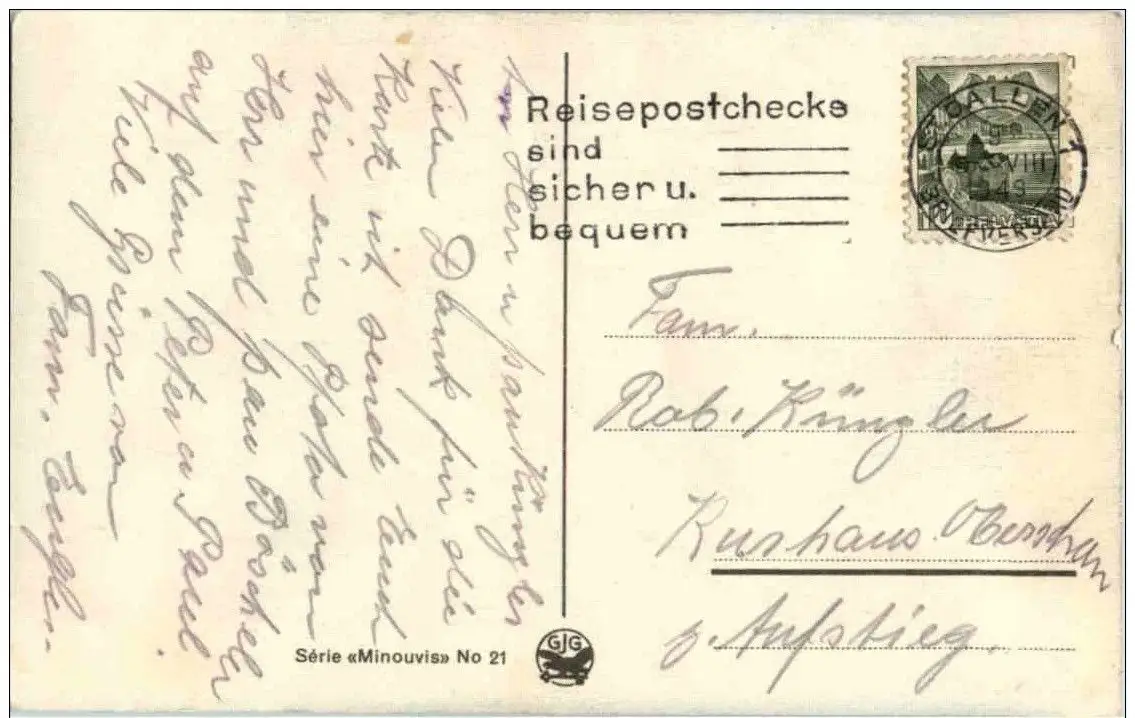 Herr u Frau Künzler
Vielen Dank für die
Karte ich sende Euch
hier eine Photo von
Herr und Frau
auf dem Peter u Paul.
Viele Grüsse von
Fam.
Reisepostchecks
sind
sicher u.
bequem
ST. GALLEN 1
VIII
BRIEFVERSAND
10
HELVETIA
Fam.
Rob. Künzler
Kurhaus Oberschan
z. Aufstieg.
Série «Minouvis» No 21
GJG